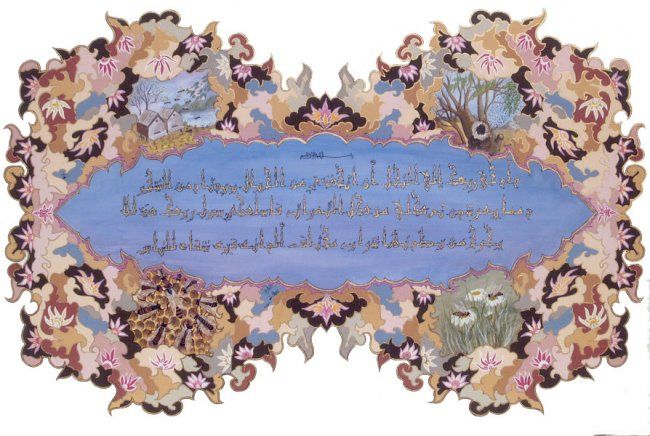 بسم الله الرحمن الرحيم
و اوحى ربك الى النحل ان اتخذي من الجبال بيوتا و من الشجر
و مما يعرشون ثم كلي من كل الثمرات فاسلكي سبل ربك ذللا
يخرج من بطونها شراب مختلف الوانه فيه شفاء للناس